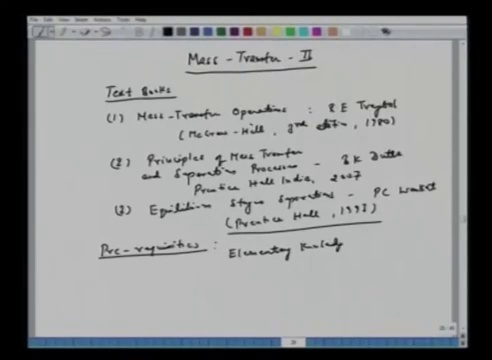 Mass - Transfer - II
Text Books
(1) Mass-Transfer Operations : R E Treybal
(McGraw-Hill, 3rd edition, 1980)
(2) Principles of Mass Transfer
and Separation Processes - B K Dutta
Prentice Hall India, 2007
(3) Equilibrium Stage Separations - PC Wankat
(Prentice Hall, 1993)
Pre-requisites : Elementary